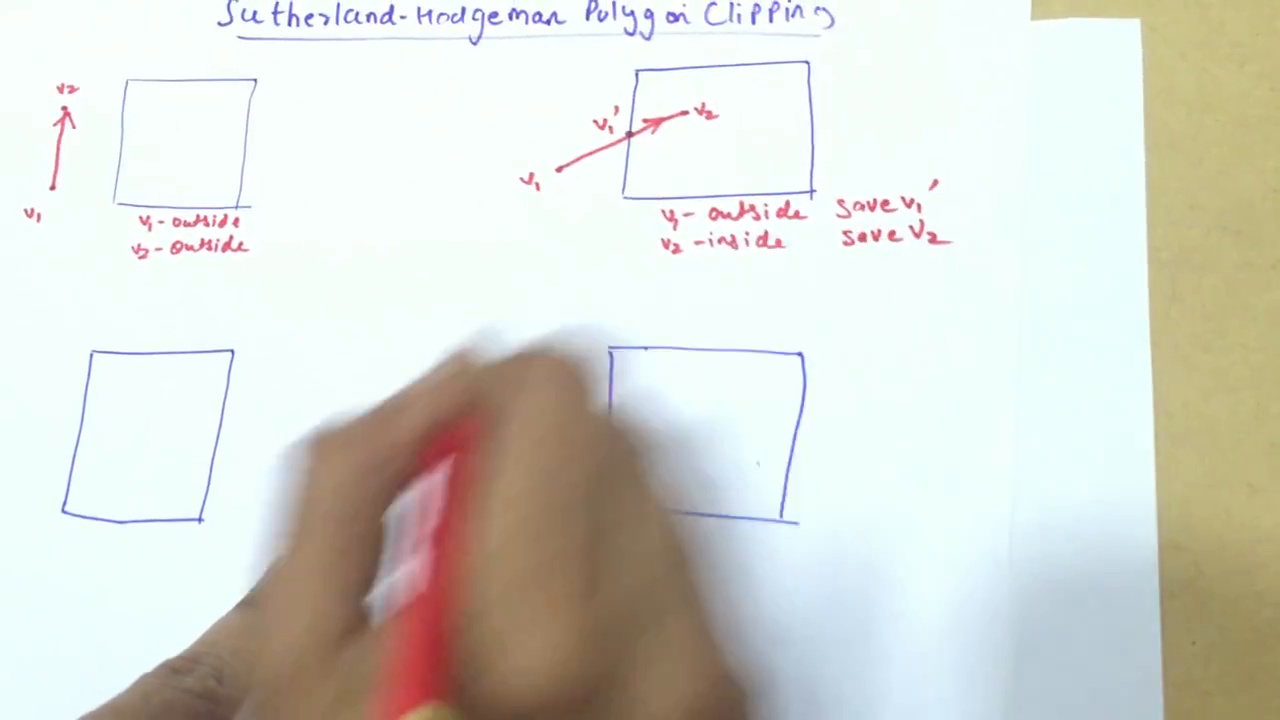 Sutherland-Hodgeman Polygon Clipping
v2
v1
v1 - outside
v2 - outside
v1'
v2
v1
v1 - outside save v1'
v2 - inside save v2